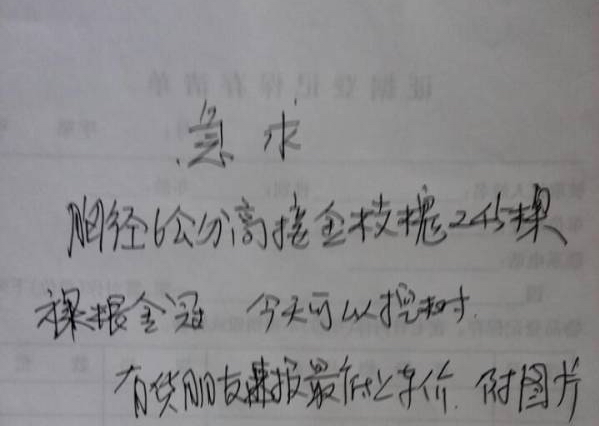 急求
胸径6公分高接金枝槐245棵
裸根全冠 今天可以挖
有货朋友报最低上车价.附图片